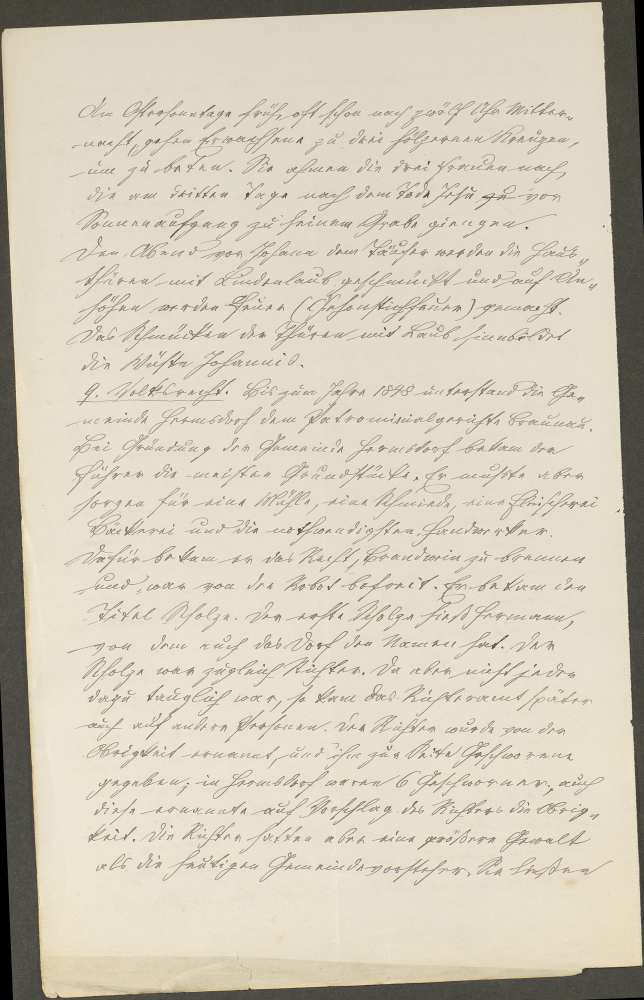 Am Ostersonntage früh, oft schon nach zwölf Uhr Mitter„
nacht, gehen Erwachsene zu drei hölzernen Kreuzen,
um zu beten. Sie ahmen die drei Frauen nach,
die am dritten Tage nach dem Tode Jesu zu vor
Sonnenaufgang zu seinem Grabe giengen.
Den Abend vor Johann dem Täufer werden die Haus„
thüren mit Lindenlaub geschmückt und auf An„
höhen werden Feuer () gemacht.
Das Schmücken der Thüren mit Laub sinnbildet
die Wüste Johannis.
9. Volksrecht. Bis zum Jahre 1848 unterstand die Ge„
meinde Hermsdorf dem Patrimonialgerichte Braunau.
Bei Gründung der Gemeinde Hermsdorf bekam der
Führer die meisten Grundstücke. Er mußte aber
sorgen für eine Mühle, eine Schmiede, eine Fleischerei
Bäckerei und die nothwendigsten Handwerker.
Dafür bekam er das Recht, Brandwein zu brennen
und war von der Robot befreit. Er bekam den
Titel Scholze. Der erste Scholze hieß Hermann,
von dem auch das Dorf den Namen hat. Der
Scholze war zugleich Richter. Da aber nicht jeder
dazu tauglich war, so kam das Richteramt später
auch auf andere Personen. Der Richter wurde von der
Obrigkeit ernannt, und ihm zur Seite Geschworene
gegeben; in Hermsdorf waren 6 Geschworner, auch
diese ernannte auf Vorschlag des Richters die Obrig„
keit. Die Richter hatten aber eine größere Gewalt
als die heutigen Gemeindevorsteher. Sie ließen